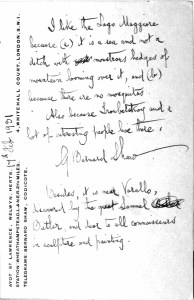 I like the Lago Maggiore
because (a) it is a sea and not a
ditch with monstrous hedges of
mountains looming over it, and (b)
because there are no mosquitos.
Also because Troubetskoy and a
lot of interesting people live there.
G. Bernard Shaw
Besides, it is near Varallo,
discovered by the great Samuel
Butler, and dear to all connoisseurs
in sculpture and painting.
4, WHITEHALL COURT, LONDON, S.W.1.
17th Oct 1931
AYOT ST LAWRENCE, WELWYN, HERTS.
STATION: WHEATHAMPSTEAD, L.&N.E.R. 2¼ MILES.
TELEGRAMS: BERNARD SHAW, CODICOTE.